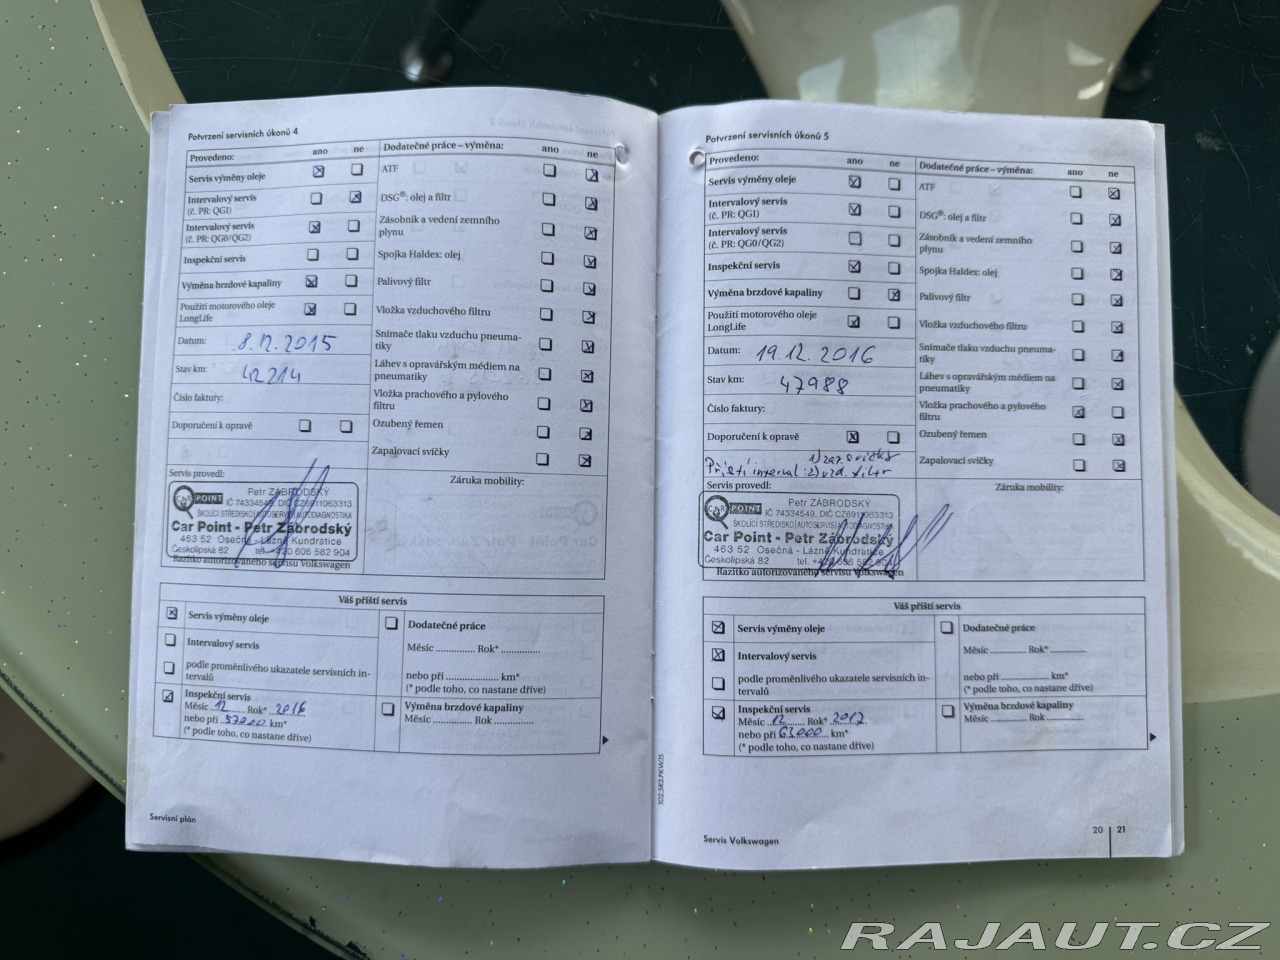 Potvrzení servisních úkonů 4
Provedeno: ano ne
Servis výměny oleje
Intervalový servis
(č. PR: QG1)
Intervalový servis
(č. PR: QG0/QG2)
Inspekční servis
Výměna brzdové kapaliny
Použití motorového oleje
LongLife
Datum: 8.12.2015
Stav km: 42214
Číslo faktury:
Doporučení k opravě
Servis provedl:
CAR POINT
Petr ZÁBRODSKÝ
IČ 74334549, DIČ CZ6911063313
ŠKOLÍCÍ STŘEDISKO|AUTOSERVIS|AUTODIAGNOSTIKA
Car Point - Petr Zábrodský
463 52 Osečná - Lázně Kundratice
Českolipská 82 tel. +420 606 582 904
Razítko autorizovaného servisu Volkswagen
Dodatečné práce – výměna: ano ne
ATF
DSG®: olej a filtr
Zásobník a vedení zemního
plynu
Spojka Haldex: olej
Palivový filtr
Vložka vzduchového filtru
Snímače tlaku vzduchu pneuma-
tiky
Láhev s opravářským médiem na
pneumatiky
Vložka prachového a pylového
filtru
Ozubený řemen
Zapalovací svíčky
Záruka mobility:
Váš příští servis
Servis výměny oleje
Intervalový servis
podle proměnlivého ukazatele servisních in-
tervalů
Inspekční servis
Měsíc 12 Rok* 2016
nebo při 57000 km*
(* podle toho, co nastane dříve)
Dodatečné práce
Měsíc ............... Rok* ...............
nebo při .................... km*
(* podle toho, co nastane dříve)
Výměna brzdové kapaliny
Měsíc ............... Rok ...............
Servisní plán
Potvrzení servisních úkonů 5
Provedeno: ano ne
Servis výměny oleje
Intervalový servis
(č. PR: QG1)
Intervalový servis
(č. PR: QG0/QG2)
Inspekční servis
Výměna brzdové kapaliny
Použití motorového oleje
LongLife
Datum: 19.12.2016
Stav km: 47988
Číslo faktury:
Doporučení k opravě
Příští interval: 2) vzd. filtr
Servis provedl:
CAR POINT
Petr ZÁBRODSKÝ
IČ 74334549, DIČ CZ6911063313
ŠKOLÍCÍ STŘEDISKO|AUTOSERVIS|AUTODIAGNOSTIKA
Car Point - Petr Zábrodský
463 52 Osečná - Lázně Kundratice
Českolipská 82 tel. +420 606 582 904
Razítko autorizovaného servisu Volkswagen
Dodatečné práce – výměna: ano ne
ATF
DSG®: olej a filtr
Zásobník a vedení zemního
plynu
Spojka Haldex: olej
Palivový filtr
Vložka vzduchového filtru
Snímače tlaku vzduchu pneuma-
tiky
Láhev s opravářským médiem na
pneumatiky
Vložka prachového a pylového
filtru
Ozubený řemen
Zapalovací svíčky
Záruka mobility:
Váš příští servis
Servis výměny oleje
Intervalový servis
podle proměnlivého ukazatele servisních in-
tervalů
Inspekční servis
Měsíc 12 Rok* 2017
nebo při 63000 km*
(* podle toho, co nastane dříve)
Dodatečné práce
Měsíc ............... Rok* ...............
nebo při .................... km*
(* podle toho, co nastane dříve)
Výměna brzdové kapaliny
Měsíc ............... Rok ...............
Servis Volkswagen
20 | 21
RAJAUT.CZ